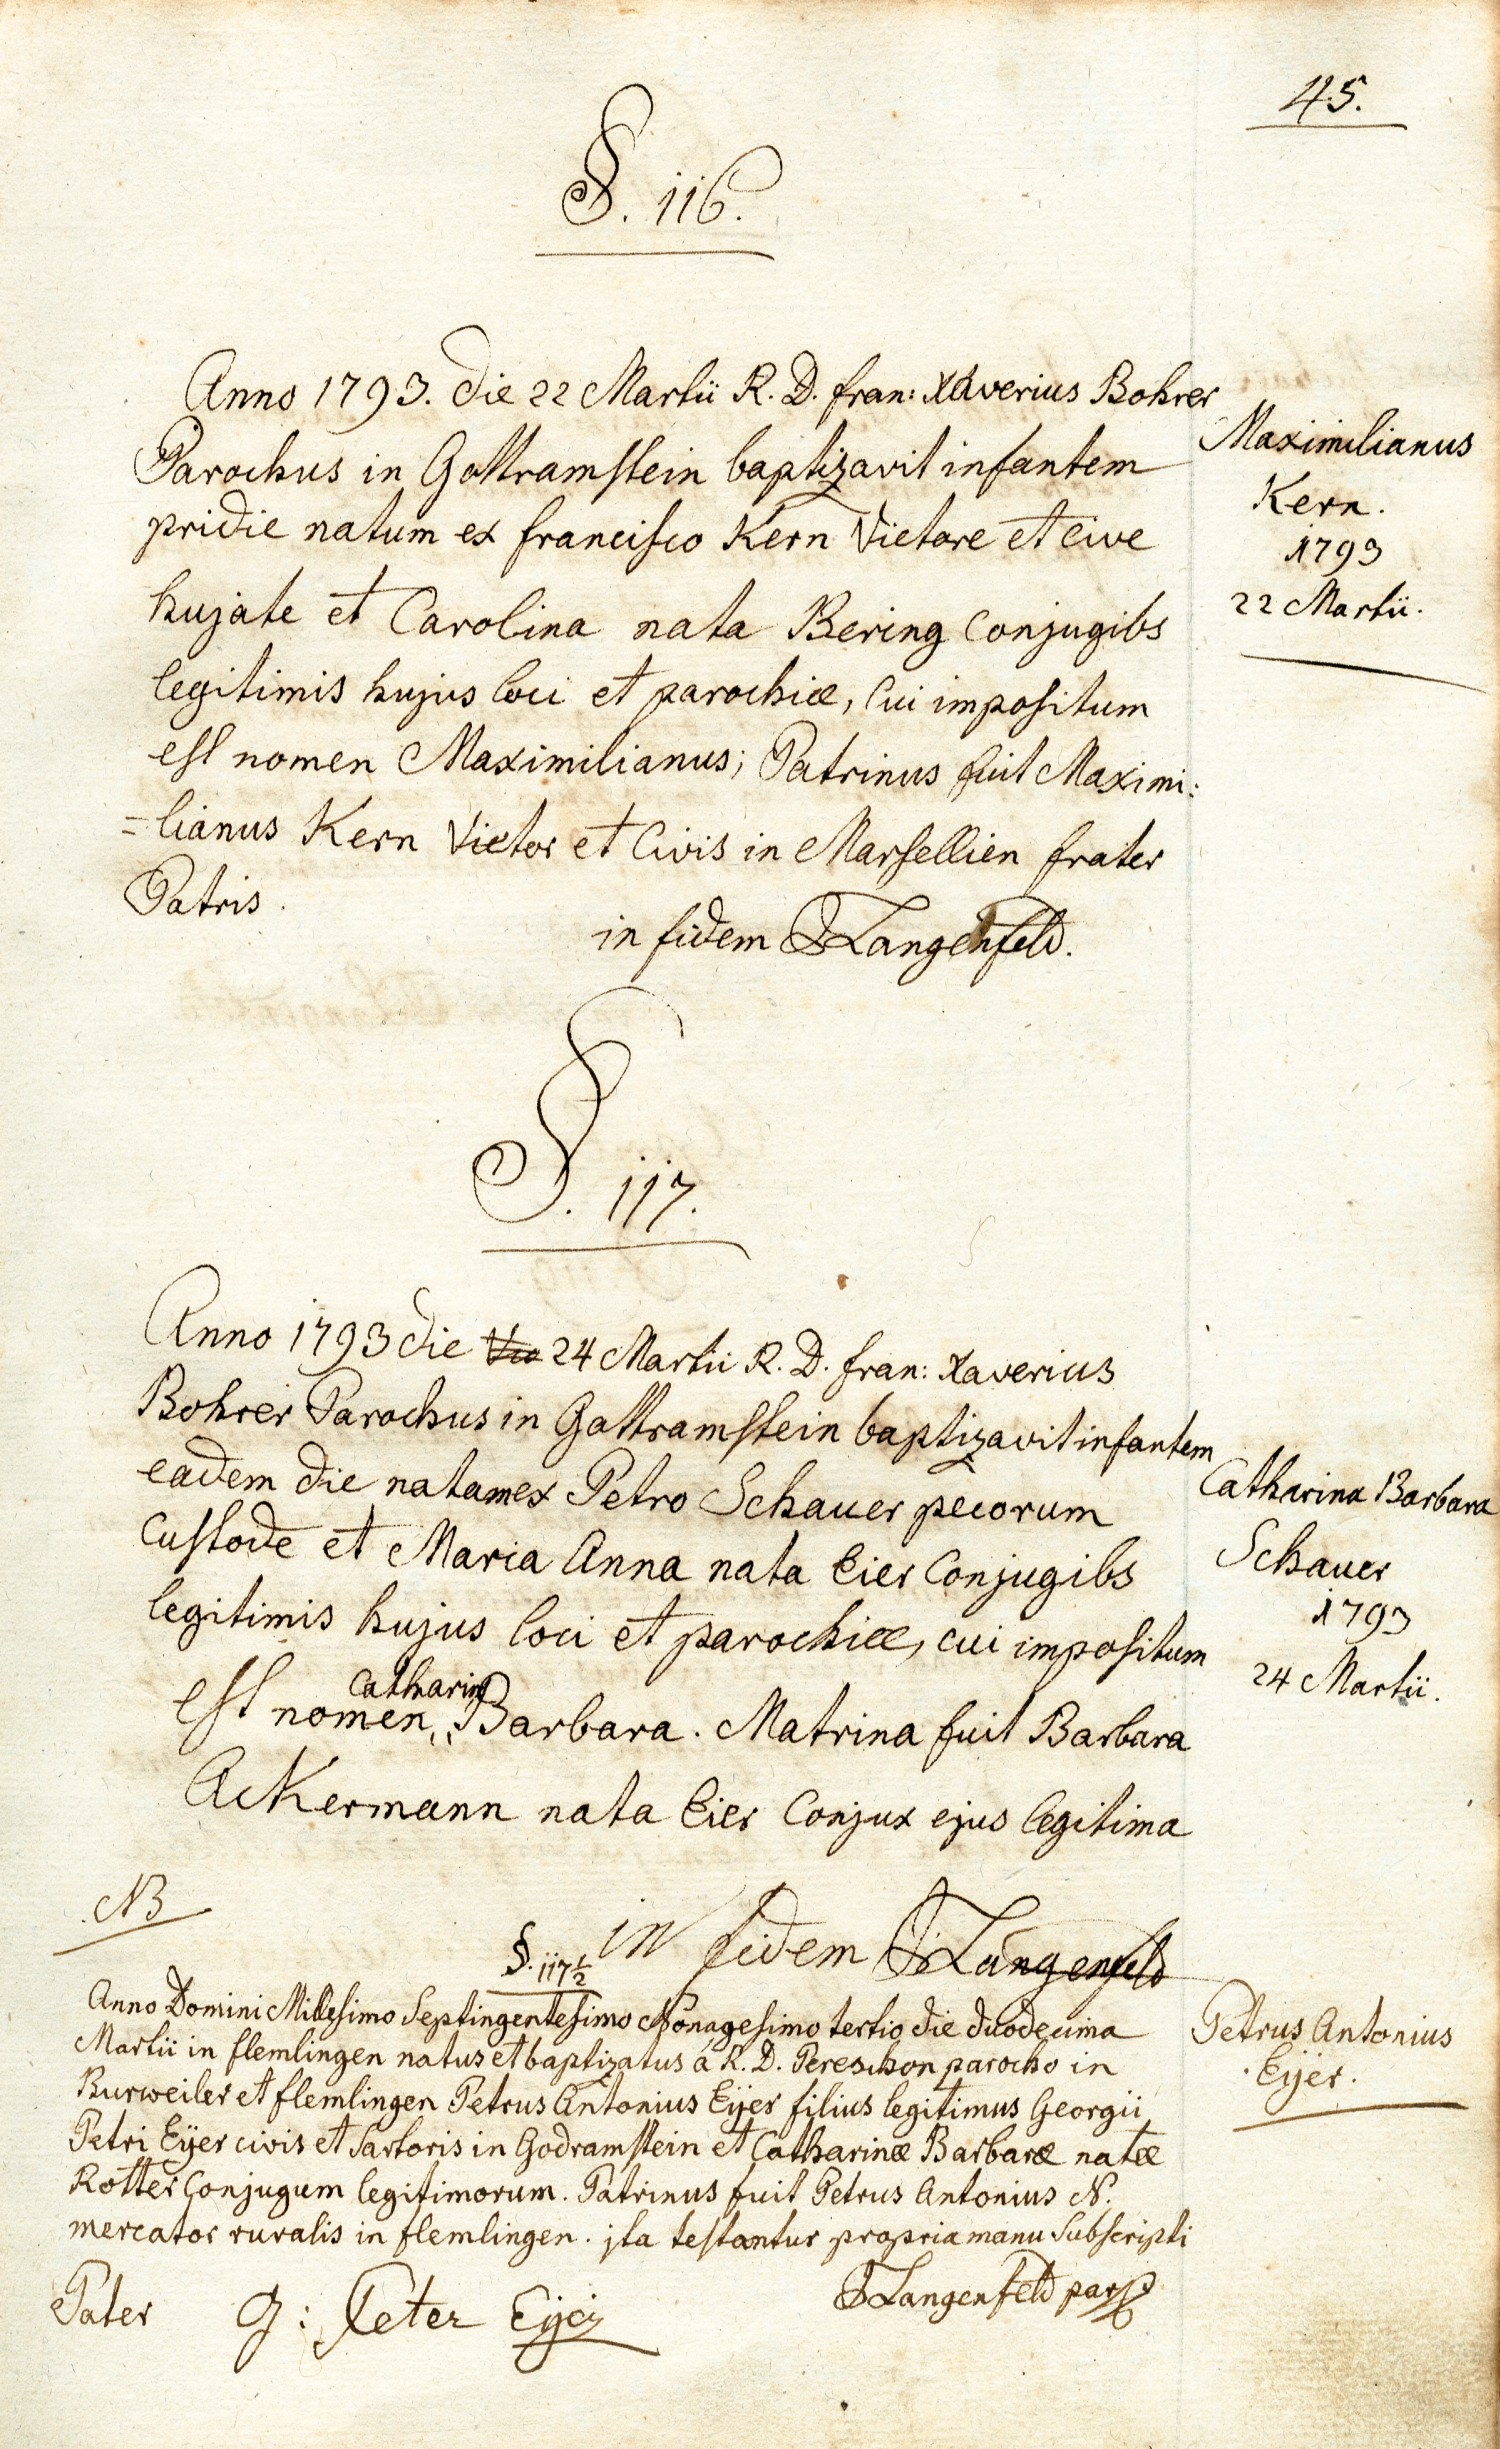 45.
§. 116.
Anno 1793. die 22 Martii R. D. fran: Xaverius Bohrer
Parochus in Gottramstein baptizavit infantem
pridie natum ex francisco Kern Vietore et cive
hujate et Carolina nata Bering Conjugibs
legitimis hujus loci et parochiæ, Cui impositum
est nomen Maximilianus; Patrinus fuit Maximi:
=lianus Kern Vietor et Civis in Marsellien frater
Patris.
in fidem Langenfeld.
Maximilianus
Kern.
1793
22 Martii.
§. 117.
Anno 1793 die 24 Martii R. D. fran: Xaverius
Bohrer Parochus in Gottramstein baptizavit infantem
eadem die natam ex Petro Schauer pecorum
Custode et Maria Anna nata Eier Conjugibs
legitimis hujus loci et parochiæ, cui impositum
Catharina
est nomen,, Barbara. Matrina fuit Barbara
Ackermann nata Eier Conjux ejus legitima
in fidem Langenfeld
Catharina Barbara
Schauer
1793
24 Martii.
NB
§. 117 1/2
Anno Domini Millesimo Septingentesimo Nonagesimo tertio die duodecima
Martii in flemlingen natus et baptizatus á R. D. Pereschon parocho in
Burweiler et flemlingen Petrus Antonius Eijer filius legitimus Georgii
Petri Eijer civis et Sartoris in Godramstein et Catharinæ Barbaræ natæ
Rotter Conjugum legitimorum. Patrinus fuit Petrus Antonius N.
mercator ruralis in flemlingen. jta testantur propria manu Subscripti
Langenfeld
Pater G: Peter Eijer
Petrus Antonius
Eijer.